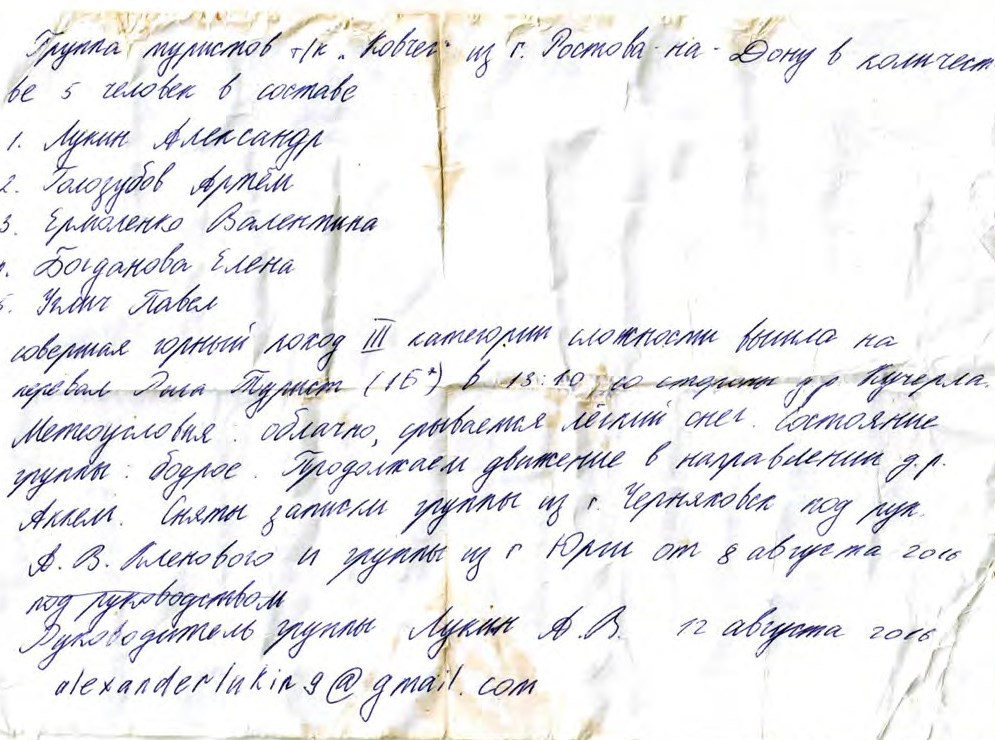 Группа туристов т/к "Ковчег" из г. Ростова-на-Дону в количест
ве 5 человек в составе
1. Лукин Александр
2. Голозубов Артём
3. Ермоленко Валентина
4. Богданова Елена
5. Павел
совершая горный поход III категории сложности вышла на
перевал Рига Турист (1Б*) в 13:10 со стороны др. Кучерла.
Метеоусловия: облачно, срывается лёгкий снег. Состояние
группы: бодрое. Продолжаем движение в направлении д.р.
Аккем. Сняты записки группы из г. Черняховск под рук.
А.В. Кленового и группы из г Юрги от 8 августа 2016
под руководством
Руководитель группы Лукин А.В. 12 августа 2016
alexanderlukin9@gmail.com